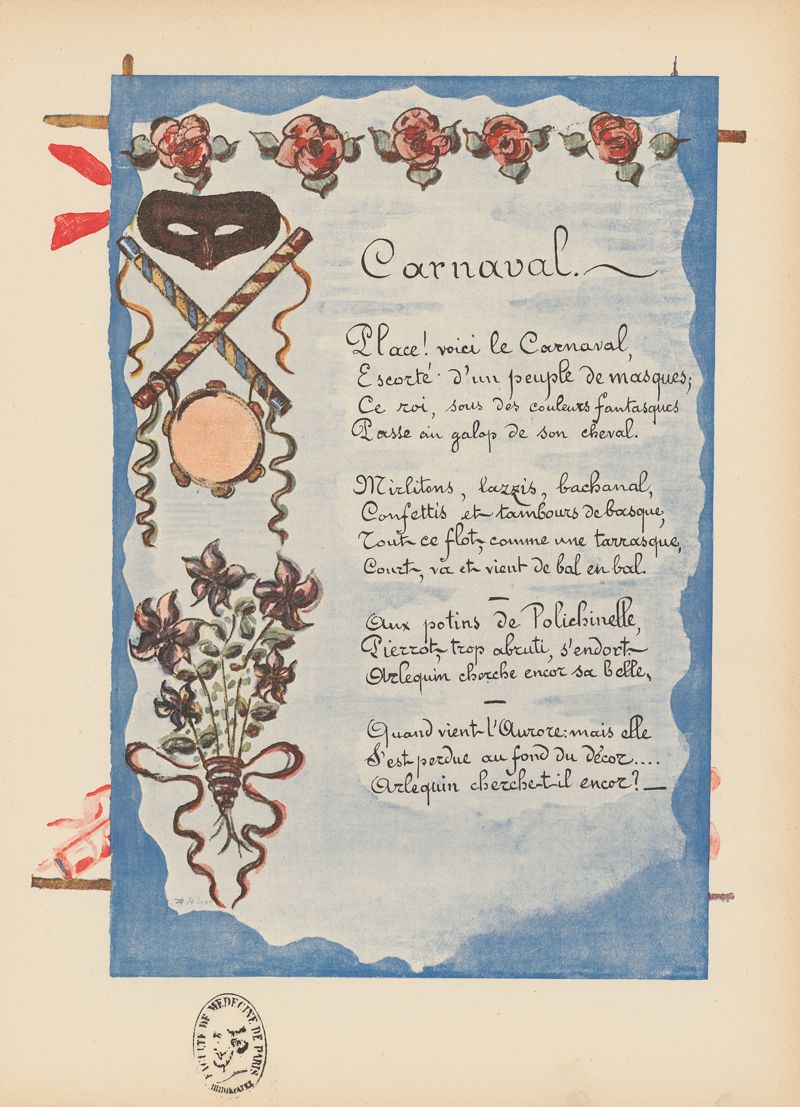 Carnaval.
Place! voici le Carnaval,
Escorté d'un peuple de masques;
Ce roi, sous des couleurs fantasques
Passe au galop de son cheval.
Mirlitons, lazzis, bachanal,
Confettis et tambours de basque,
Tout ce flot, comme une tarrasque,
Court, va et vient de bal en bal.
Aux potins de Polichinelle,
Pierrot, trop abruti, s'endort
Arlequin cherche encor sa belle,
Quand vient l'Aurore: mais elle
S'est perdue au fond du décor....
Arlequin cherche-t-il encor?
FACULTÉ DE MÉDECINE DE PARIS